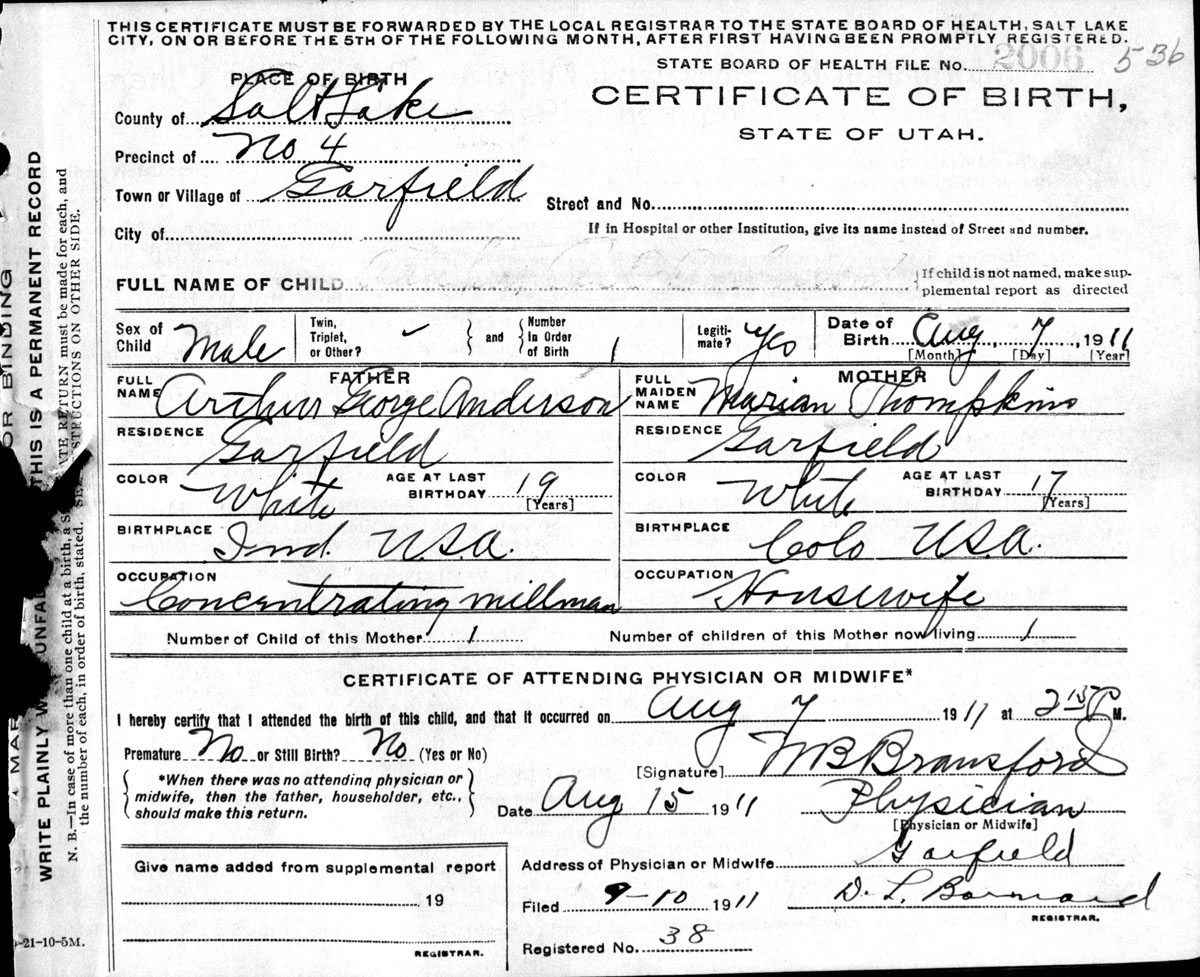 THIS CERTIFICATE MUST BE FORWARDED BY THE LOCAL REGISTRAR TO THE STATE BOARD OF HEALTH, SALT LAKE
CITY, ON OR BEFORE THE 5TH OF THE FOLLOWING MONTH, AFTER FIRST HAVING BEEN PROMPTLY REGISTERED.
STATE BOARD OF HEALTH FILE NO. 2006 536
PLACE OF BIRTH
CERTIFICATE OF BIRTH,
STATE OF UTAH.
County of Salt Lake
Precinct of No 4
Town or Village of Garfield
Street and No.
City of
If in Hospital or other Institution, give its name instead of Street and number.
FULL NAME OF CHILD
If child is not named, make sup-
plemental report as directed
Sex of Child Male
Twin, Triplet, or Other? and Number in Order of Birth 1
Legiti-mate? Yes
Date of Birth Aug. 7, 1911
[Month] [Day] [Year]
FATHER
FULL NAME Arthur George Anderson
RESIDENCE Garfield
COLOR White AGE AT LAST BIRTHDAY 19
[Years]
BIRTHPLACE Ind. U.S.A.
OCCUPATION Concentrating millman
MOTHER
FULL MAIDEN NAME Marian Thompkins
RESIDENCE Garfield
COLOR White AGE AT LAST BIRTHDAY 17
[Years]
BIRTHPLACE Colo U.S.A.
OCCUPATION Housewife
Number of Child of this Mother 1 Number of children of this Mother now living 1
CERTIFICATE OF ATTENDING PHYSICIAN OR MIDWIFE*
I hereby certify that I attended the birth of this child, and that it occurred on Aug 7 1911 at 2 15 P M.
Premature No or Still Birth? No (Yes or No)
*When there was no attending physician or
midwife, then the father, householder, etc.,
should make this return.
[Signature] W B Bransford
Date Aug 15 1911 Physician
[Physician or Midwife]
Address of Physician or Midwife Garfield
Give name added from supplemental report
19
REGISTRAR.
Filed 9-10 1911 D. L. Barnard
REGISTRAR.
Registered No. 38
-21-10-5M.
OR BINDING
WRITE PLAINLY THIS IS A PERMANENT RECORD
N. B.—In case of more than one child at a birth, a RETURN must be made for each, and
the number of each, in order of birth, stated. INSTRUCTION ON OTHER SIDE.